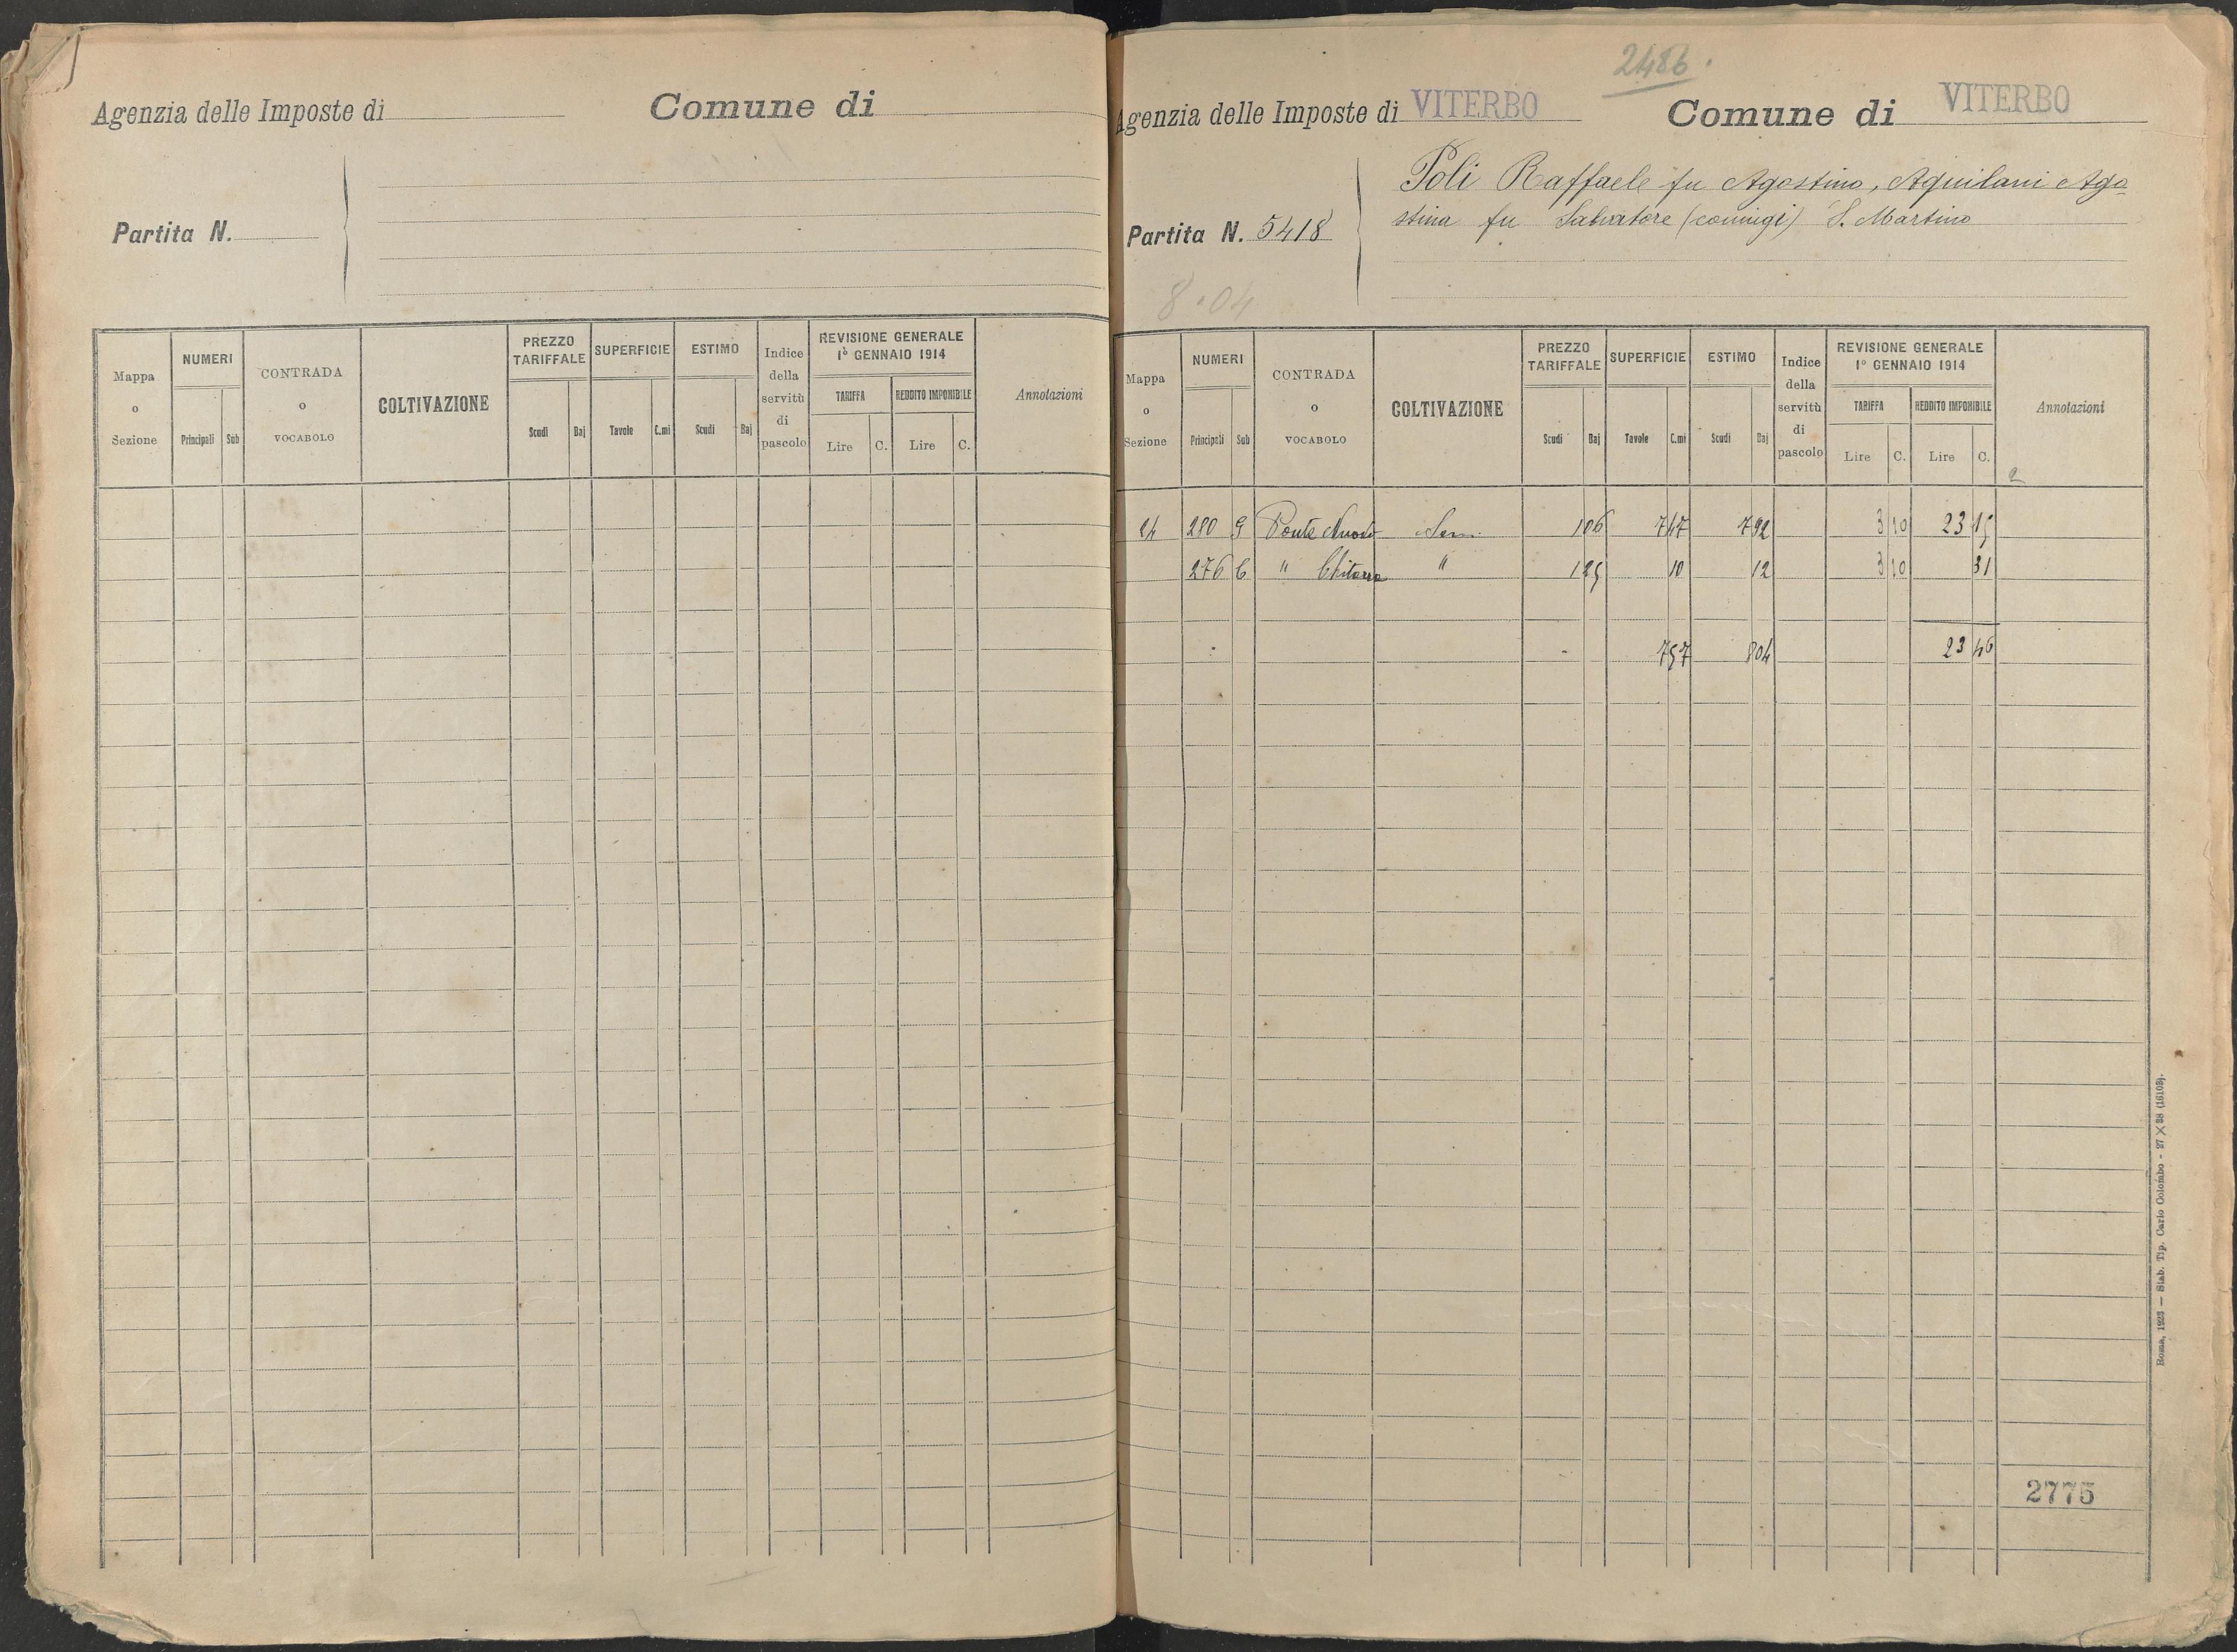 Agenzia delle Imposte di
Comune di
Partita N.
Mappa o Sezione
NUMERI
Principali Sub
CONTRADA o VOCABOLO
COLTIVAZIONE
PREZZO TARIFFALE
Scudi Baj
SUPERFICIE
Tavole C.mi
ESTIMO
Scudi Baj
Indice della servitù di pascolo
REVISIONE GENERALE
1° GENNAIO 1914
TARIFFA
Lire C.
REDDITO IMPONIBILE
Lire C.
Annotazioni
2486.
Agenzia delle Imposte di VITERBO
Comune di VITERBO
Poli Raffaele fu Agostino, Aquilani Ago-
stina fu Salvatore (coniugi) S. Martino
Partita N. 5418
8.04
Mappa o Sezione
NUMERI
Principali Sub
CONTRADA o VOCABOLO
COLTIVAZIONE
PREZZO TARIFFALE
Scudi Baj
SUPERFICIE
Tavole C.mi
ESTIMO
Scudi Baj
Indice della servitù di pascolo
REVISIONE GENERALE
1° GENNAIO 1914
TARIFFA
Lire C.
REDDITO IMPONIBILE
Lire C.
Annotazioni
2
24 280 9 Ponte Nuovo Sem. 106 747 792 3 10 23 15
276 6 " Chitarra " 125 10 12 3 10 31
757 804 23 46
2775
Roma, 1923 — Stab. Tip. Carlo Colombo - 27 X 38 (16103).